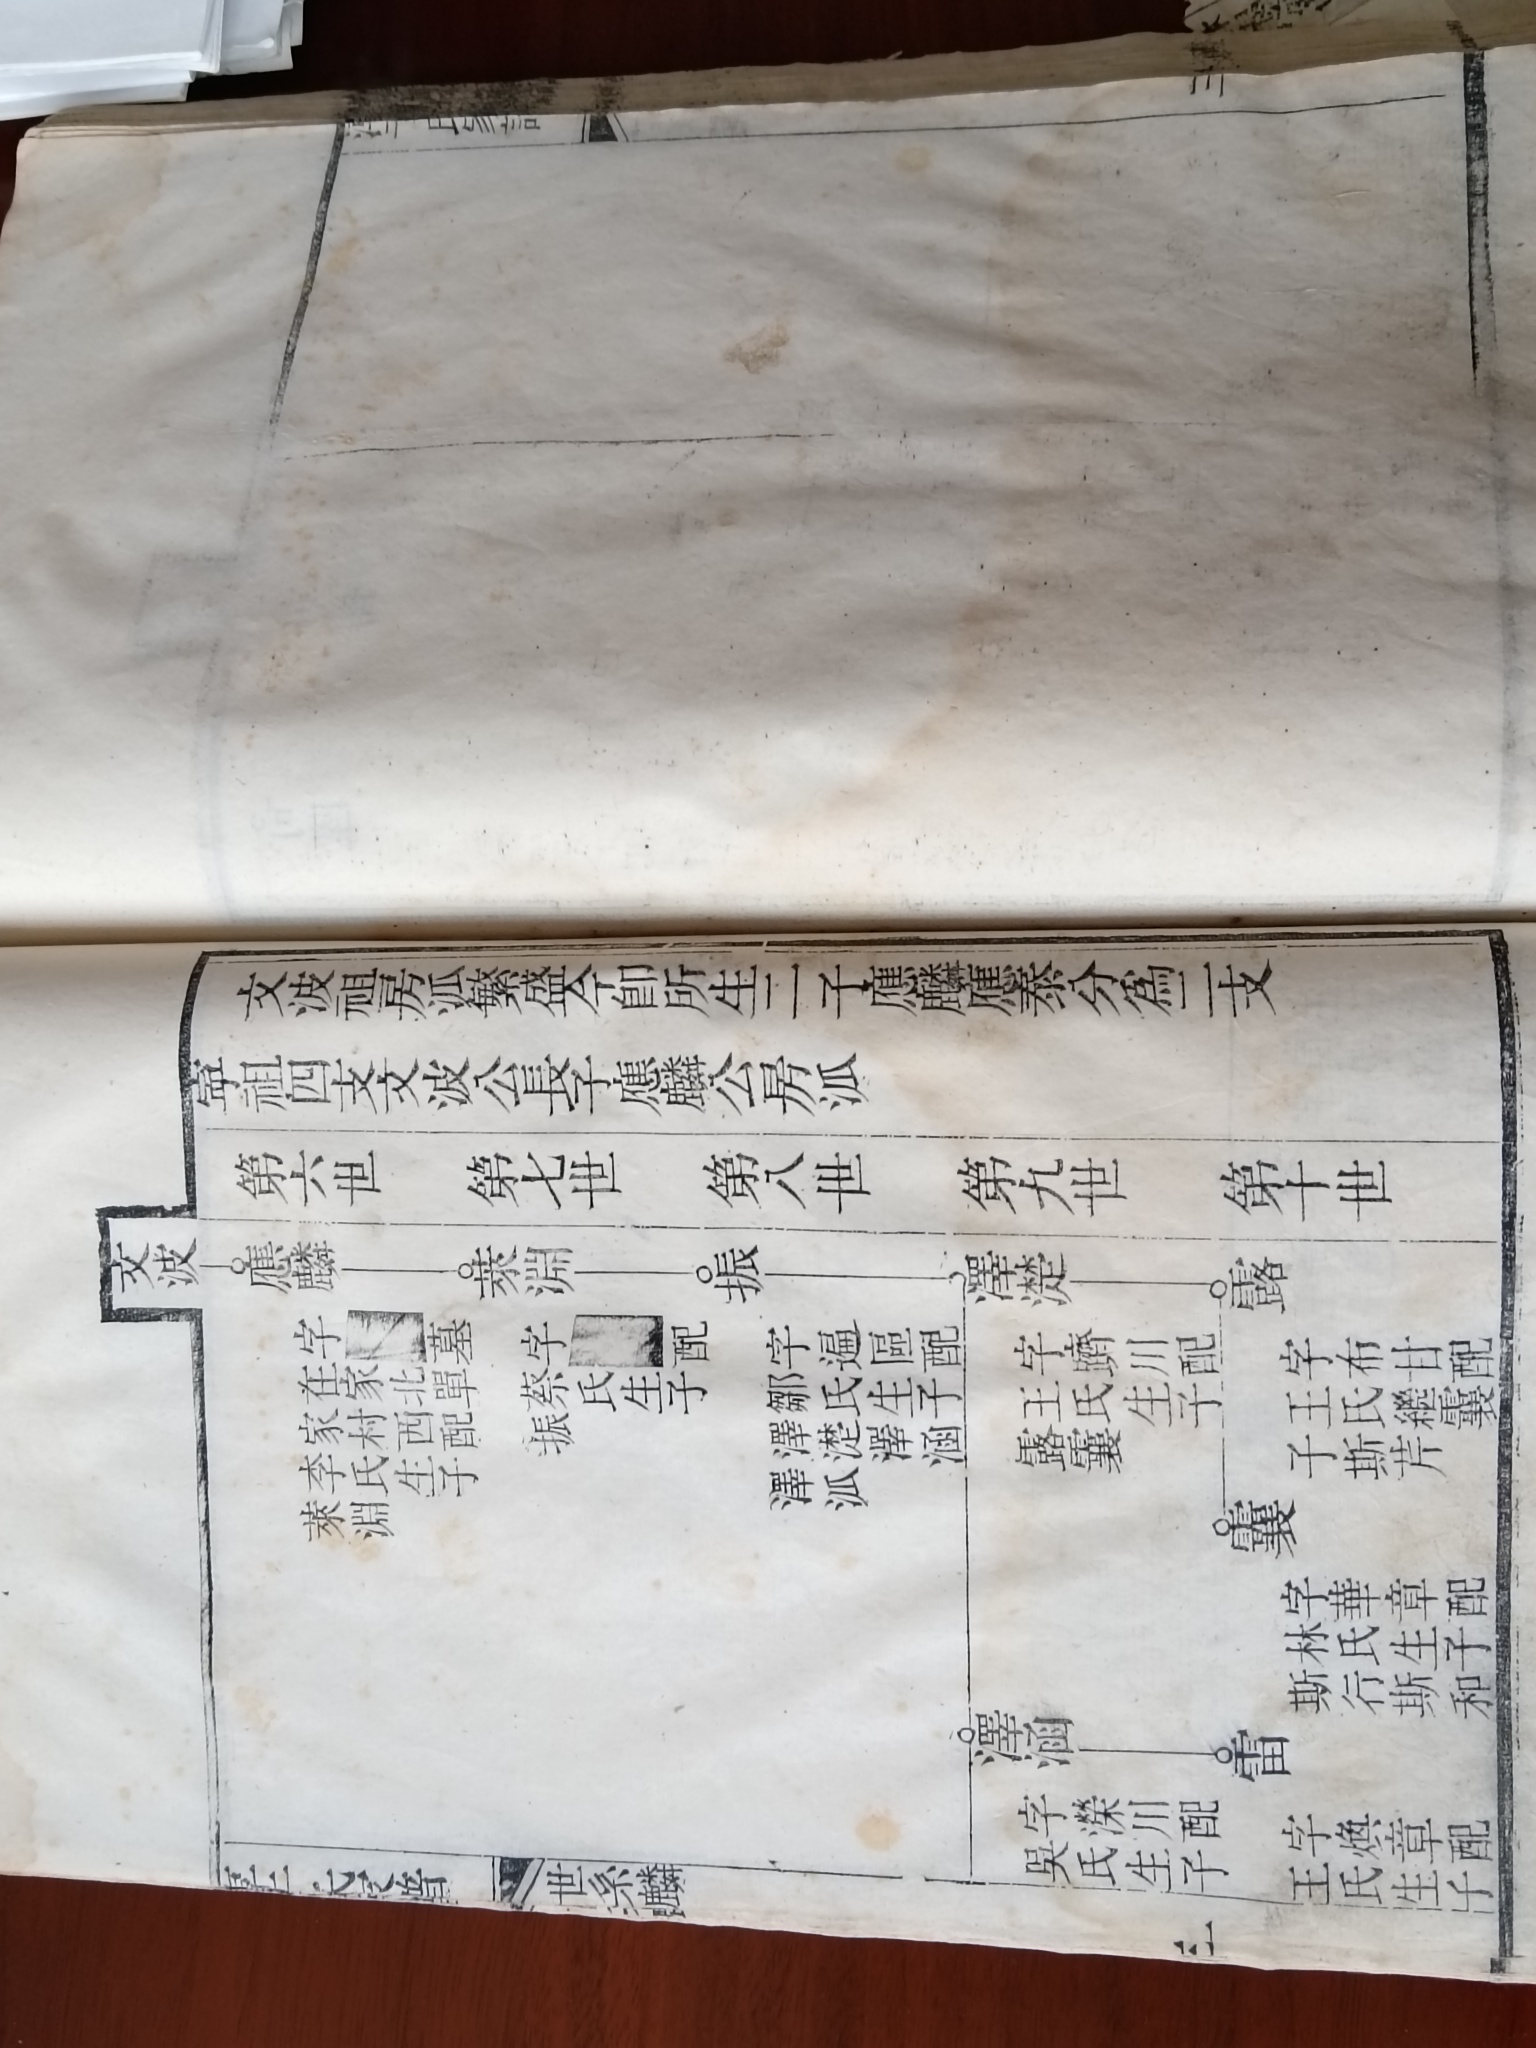 文波祖房泒繁盛今卽所生二子應麟應泰分爲二支
寧祖四支文波公長子應麟公房泒
第六世
第七世
第八世
第九世
第十世
文波
應麟
字 墓
在家北單
家村西配
李氏生子
萊淵
萊淵
字 配
蔡氏生子
振
振
字逼區配
鄒氏生子
澤濋澤涵
澤泒
澤濋
字躋川配
王氏生子
露
露
字布甘配
王氏繼
子斯芹
字華章配
林氏生子
斯行斯和
澤涵
字濚川配
吳氏生子
雷
字煥章配
王氏生子
世系
麟